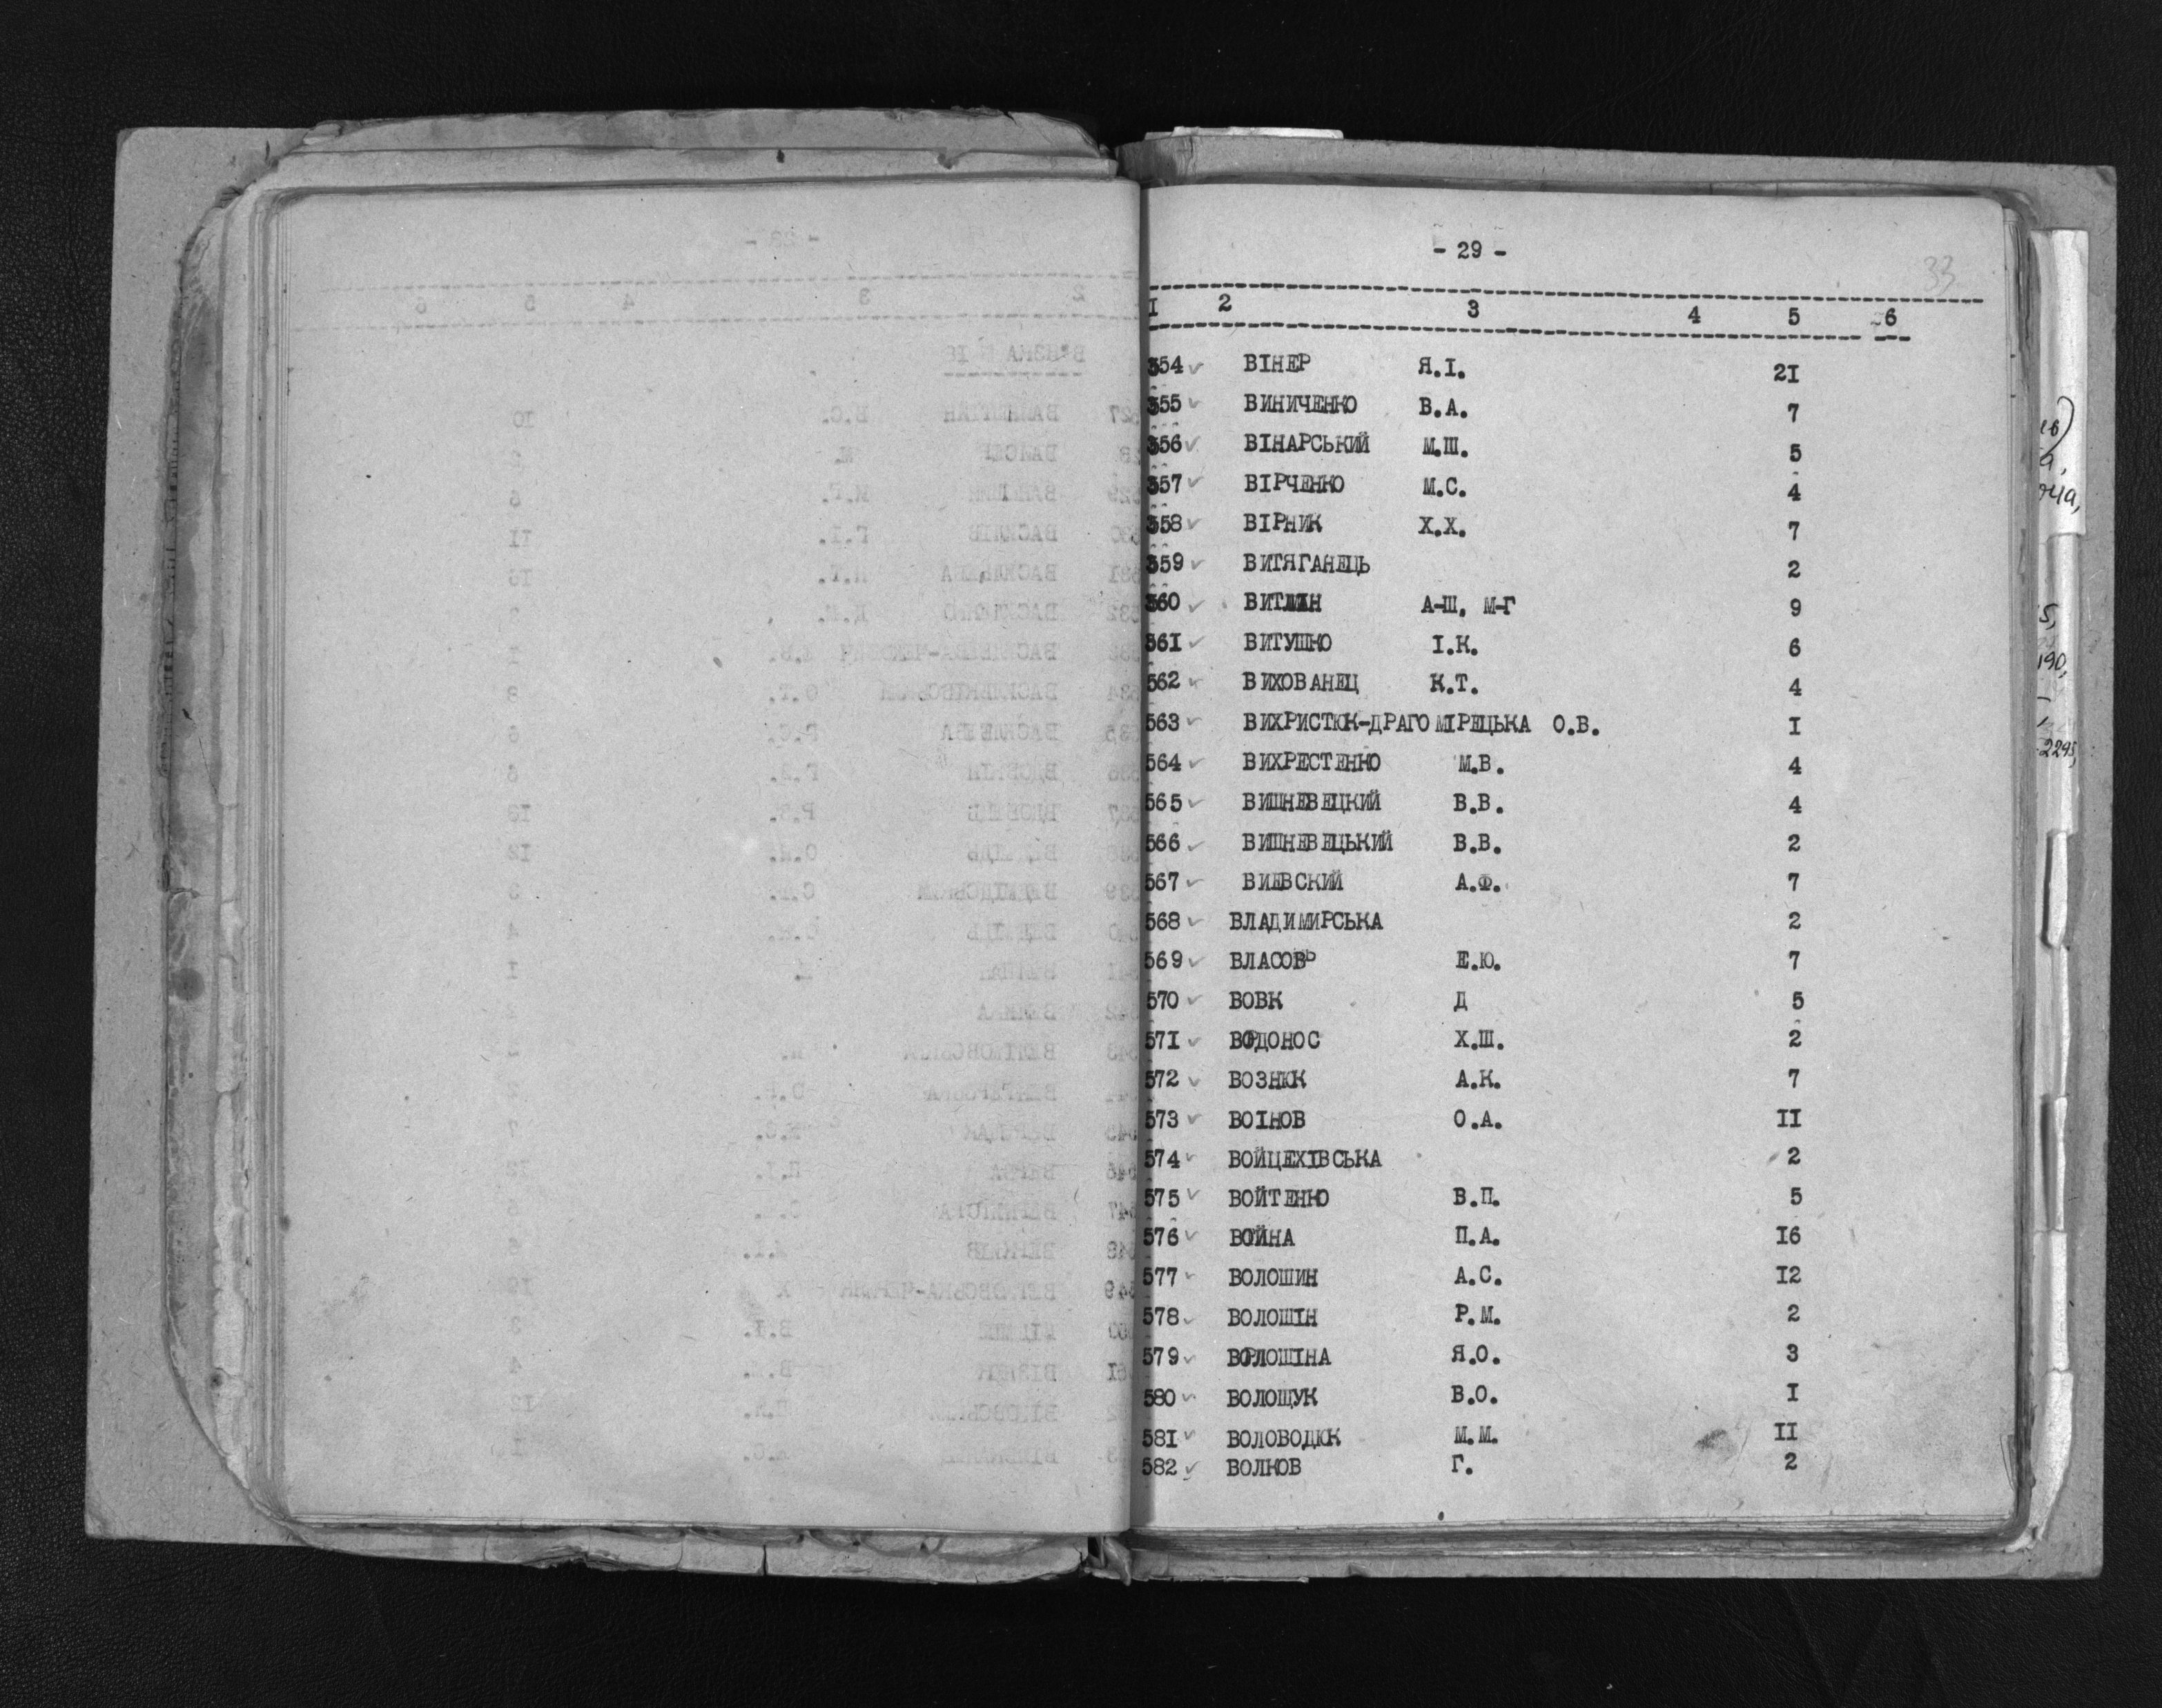 - 29 -
33
I 2 3 4 5 6
554 ВІНЕР Я.І. 2I
555 ВИНИЧЕНКО В.А. 7
556 ВІНАРСЬКИЙ М.Ш. 5
557 ВІРЧЕНКО М.С. 4
558 ВІРНИК Х.Х. 7
559 ВИТЯГАНЕЦЬ 2
560 А-Ш. М-Г 9
561 ВИТУШКО І.К. 6
562 ВИХОВАНЕЦ К.Т. 4
563 ВИХРИСТЮК-ДРАГОМІРЕЦЬКА О.В. I
564 ВИХРЕСТЕНКО М.В. 4
565 ВИШНЕВЕЦКИЙ В.В. 4
566 ВИШНЕВЕЦЬКИЙ В.В. 2
567 ВИЕВСКИЙ А.Ф. 7
568 ВЛАДИМИРСЬКА 2
569 ВЛАСОВЪ Е.Ю. 7
570 ВОВК Д 5
571 ВОДОНОС Х.Ш. 2
572 ВОЗНЮК А.К. 7
573 ВОІНОВ О.А. II
574 ВОЙЦЕХІВСЬКА 2
575 ВОЙТЕНКО В.П. 5
576 ВОЙНА П.А. I6
577 ВОЛОШИН А.С. I2
578 ВОЛОШІН Р.М. 2
579 ВОЛОШІНА Я.О. 3
580 ВОЛОЩУК В.О. I
581 ВОЛОВОДЮК М.М. II
582 ВОЛКОВ Г. 2